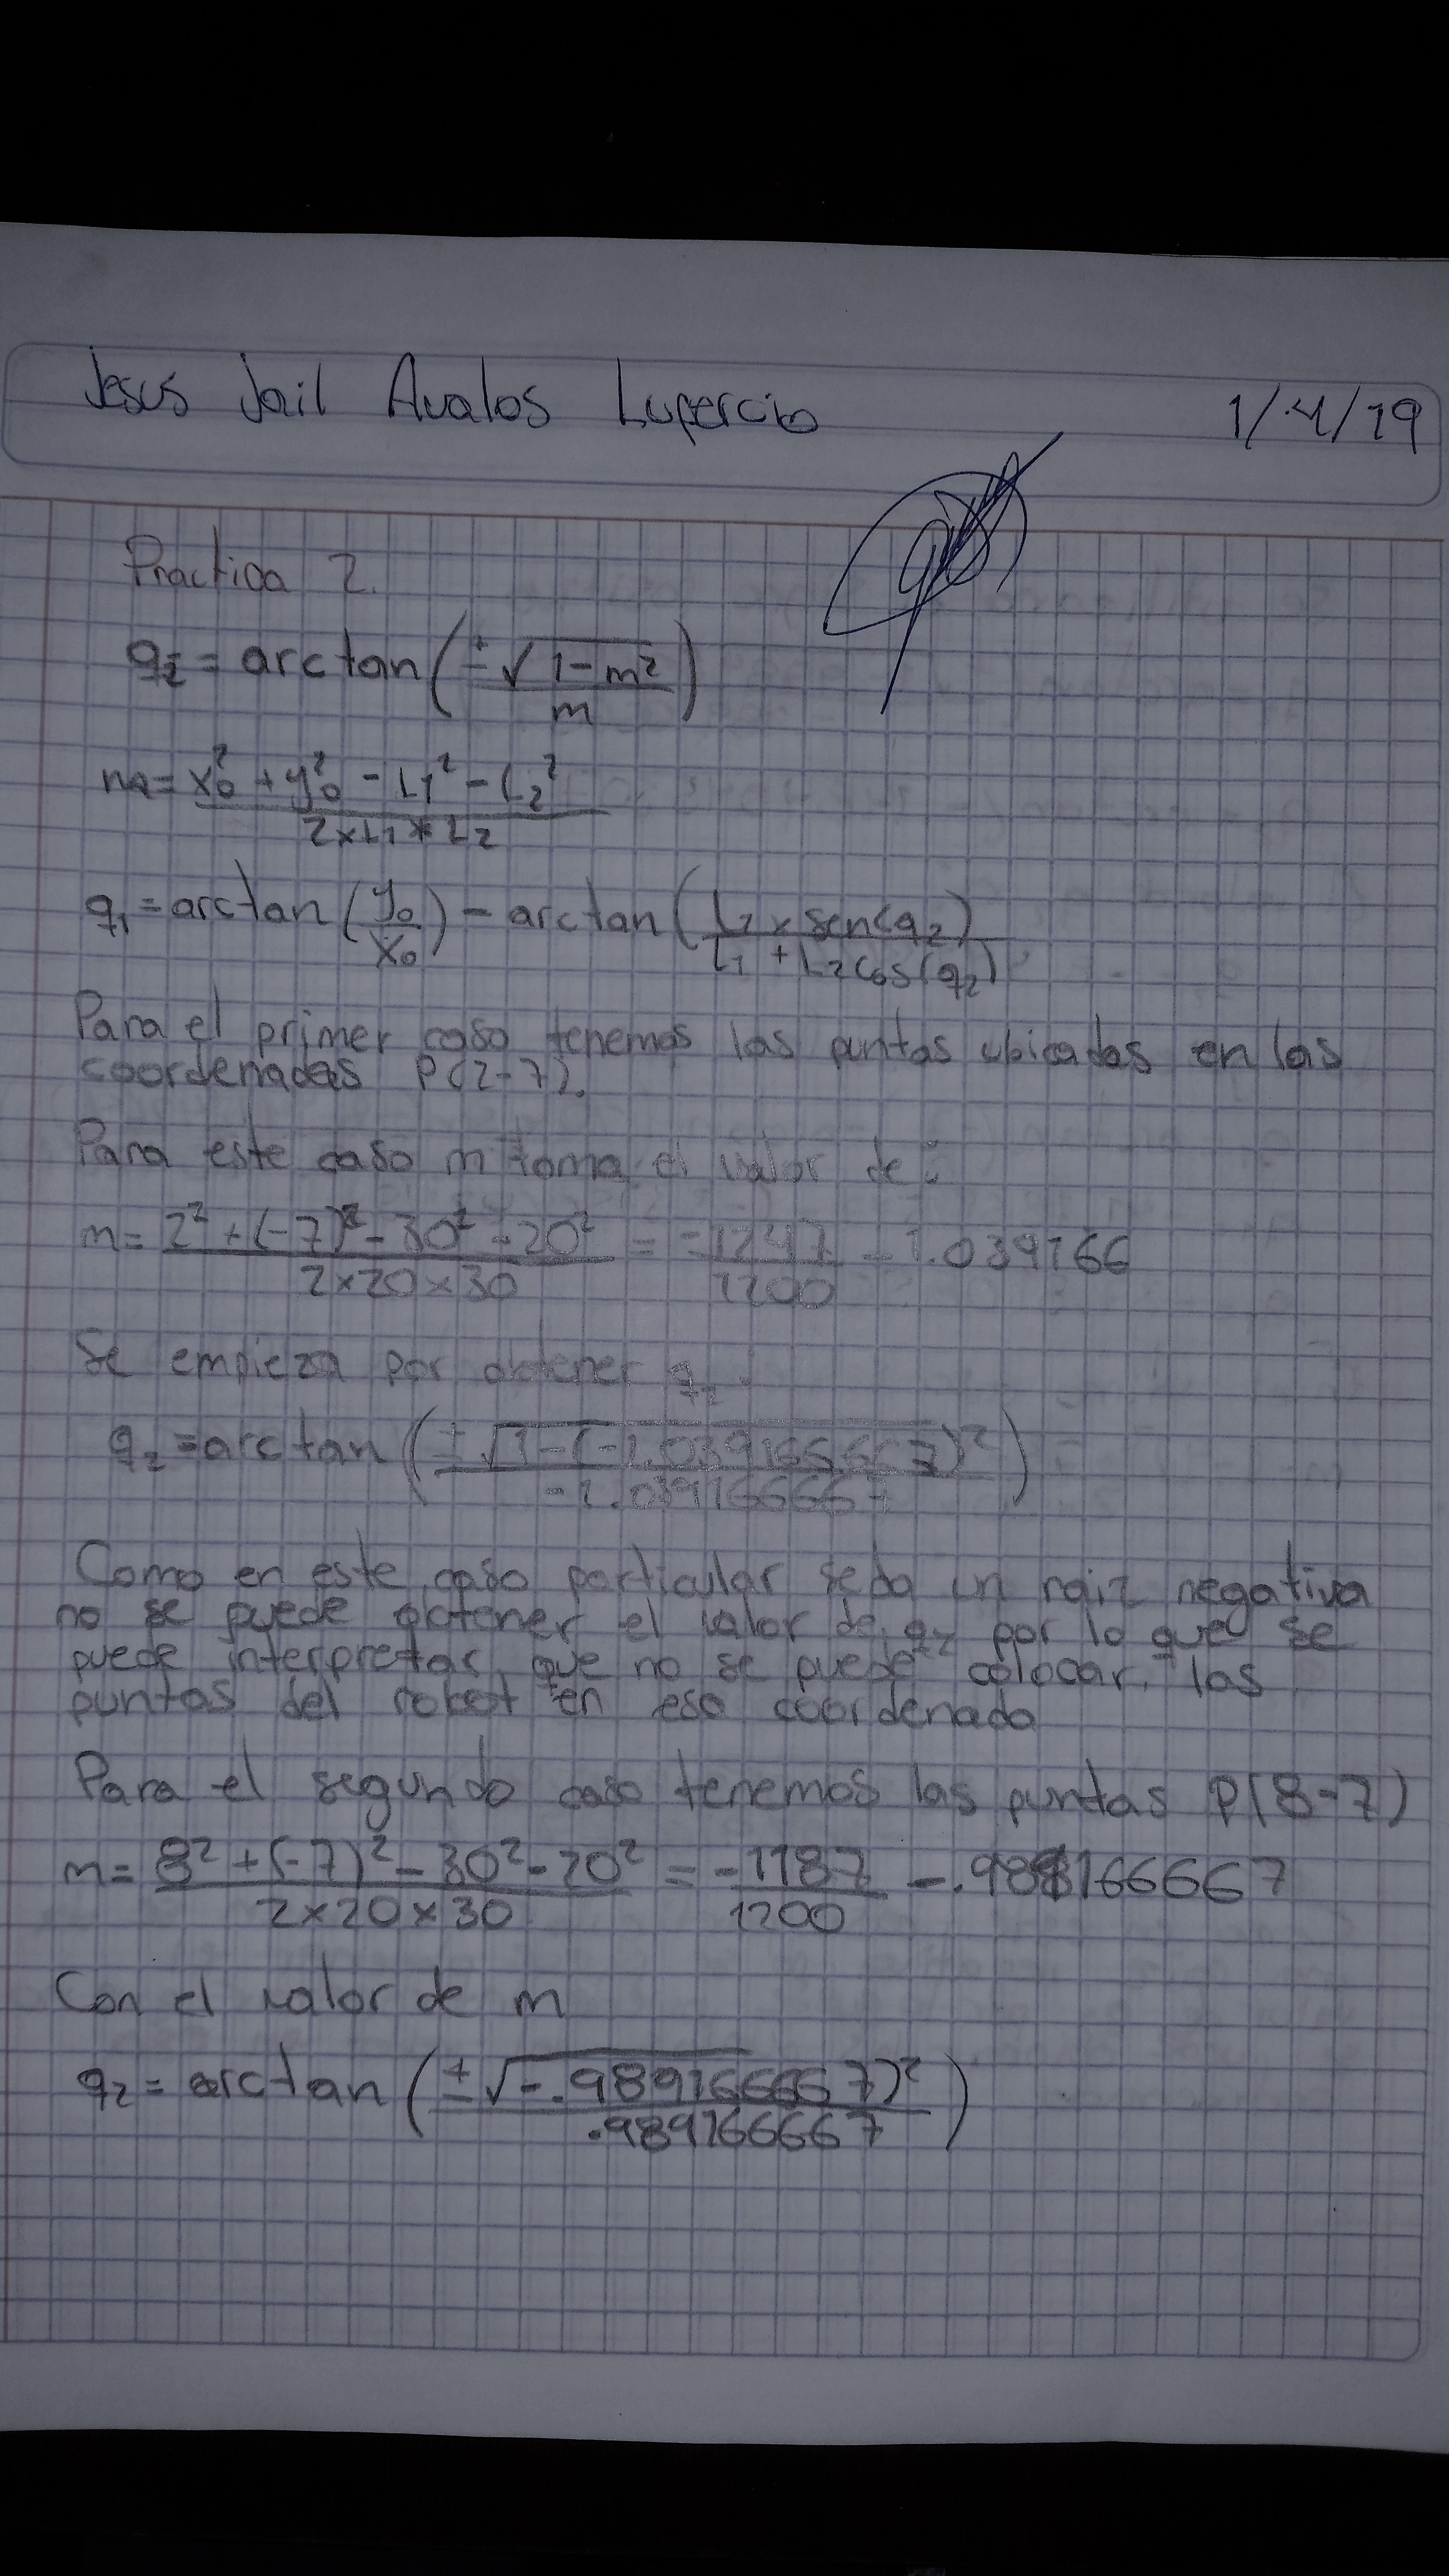 Jesus Jail Avalos Lupercio 1/4/19
Practica 2.
q2 = arctan(±√1-m²/m)
m = x0² + y0² - L1² - L2²/2xL1*L2
q1 = arctan(y0/x0) - arctan(L2 x sen(q2)/L1 + L2 cos(q2))
Para el primer caso tenemos las puntas ubicadas en las
coordenadas P(2-7).
Para este caso m toma el valor de:
m = 2² + (-7)² - 30² - 20²/2x20x30 = -1247/1200 - 1.039166
Se empieza por obtener q2:
q2 = arctan(±√1-(-1.039166667)²/-1.039166667)
Como en este caso particular se da un raiz negativa
no se puede obtener el valor de q2 por lo que se
puede interpretar que no se puede colocar las
puntas del robot en esa coordenada
Para el segundo caso tenemos las puntas P(8-7)
m = 8² + (-7)² - 30² - 20²/2x20x30 = -1187/1200 -.989166667
Con el valor de m
q2 = arctan(±√-.989166667)²/.989166667)